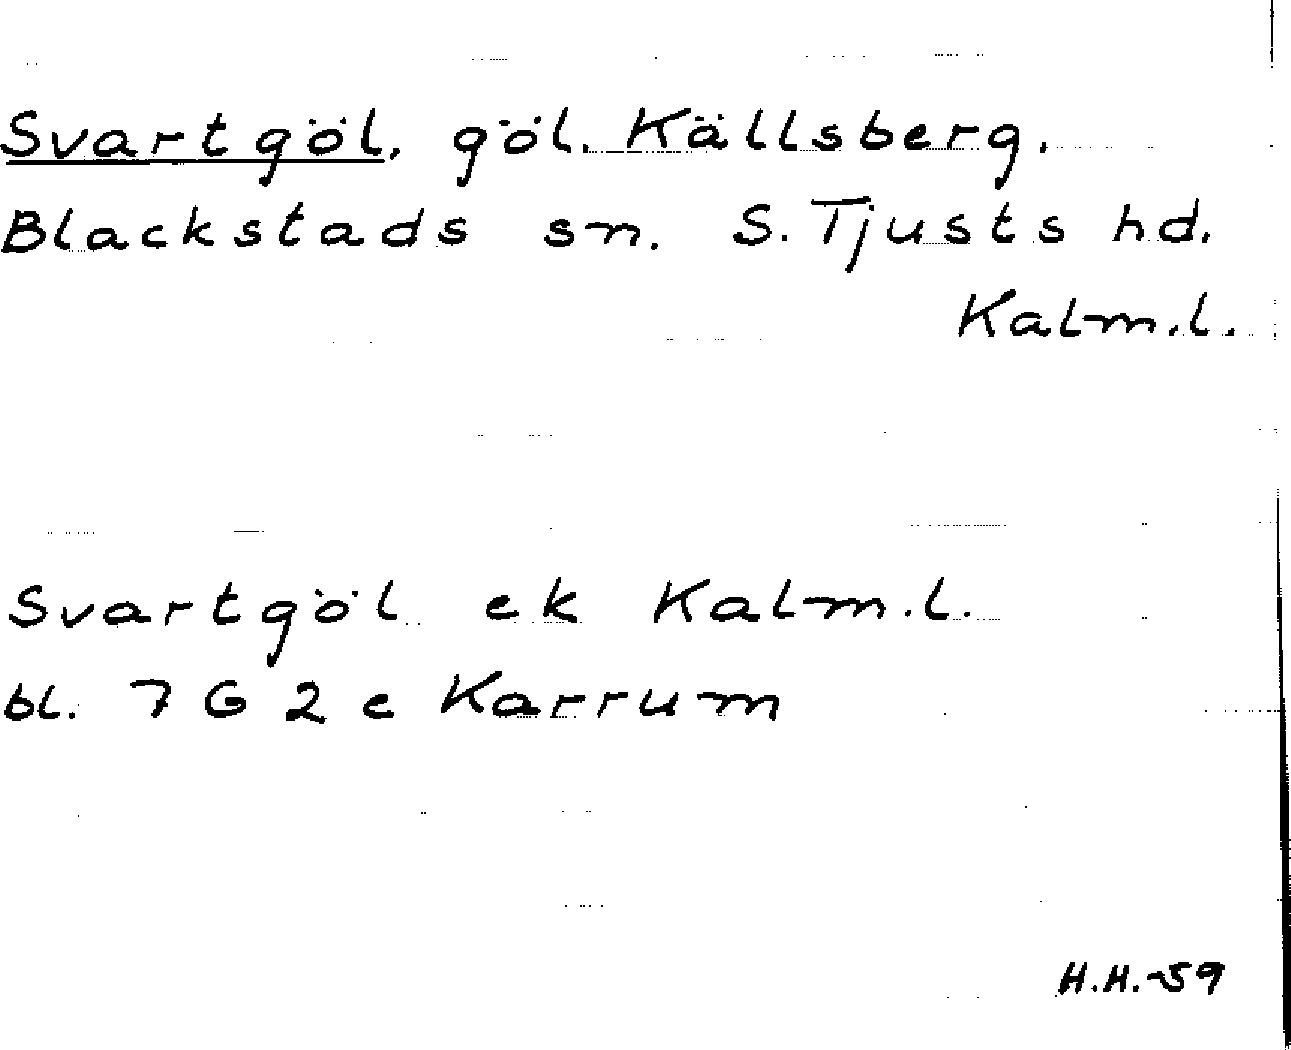 Svartgöl, göl, Källsberg,
Blackstads sn. S. Tjusts hd.
Kalm.l.
Svartgöl ek Kalm.l.
bl. 7 G 2 c Karrum
H.H.-59